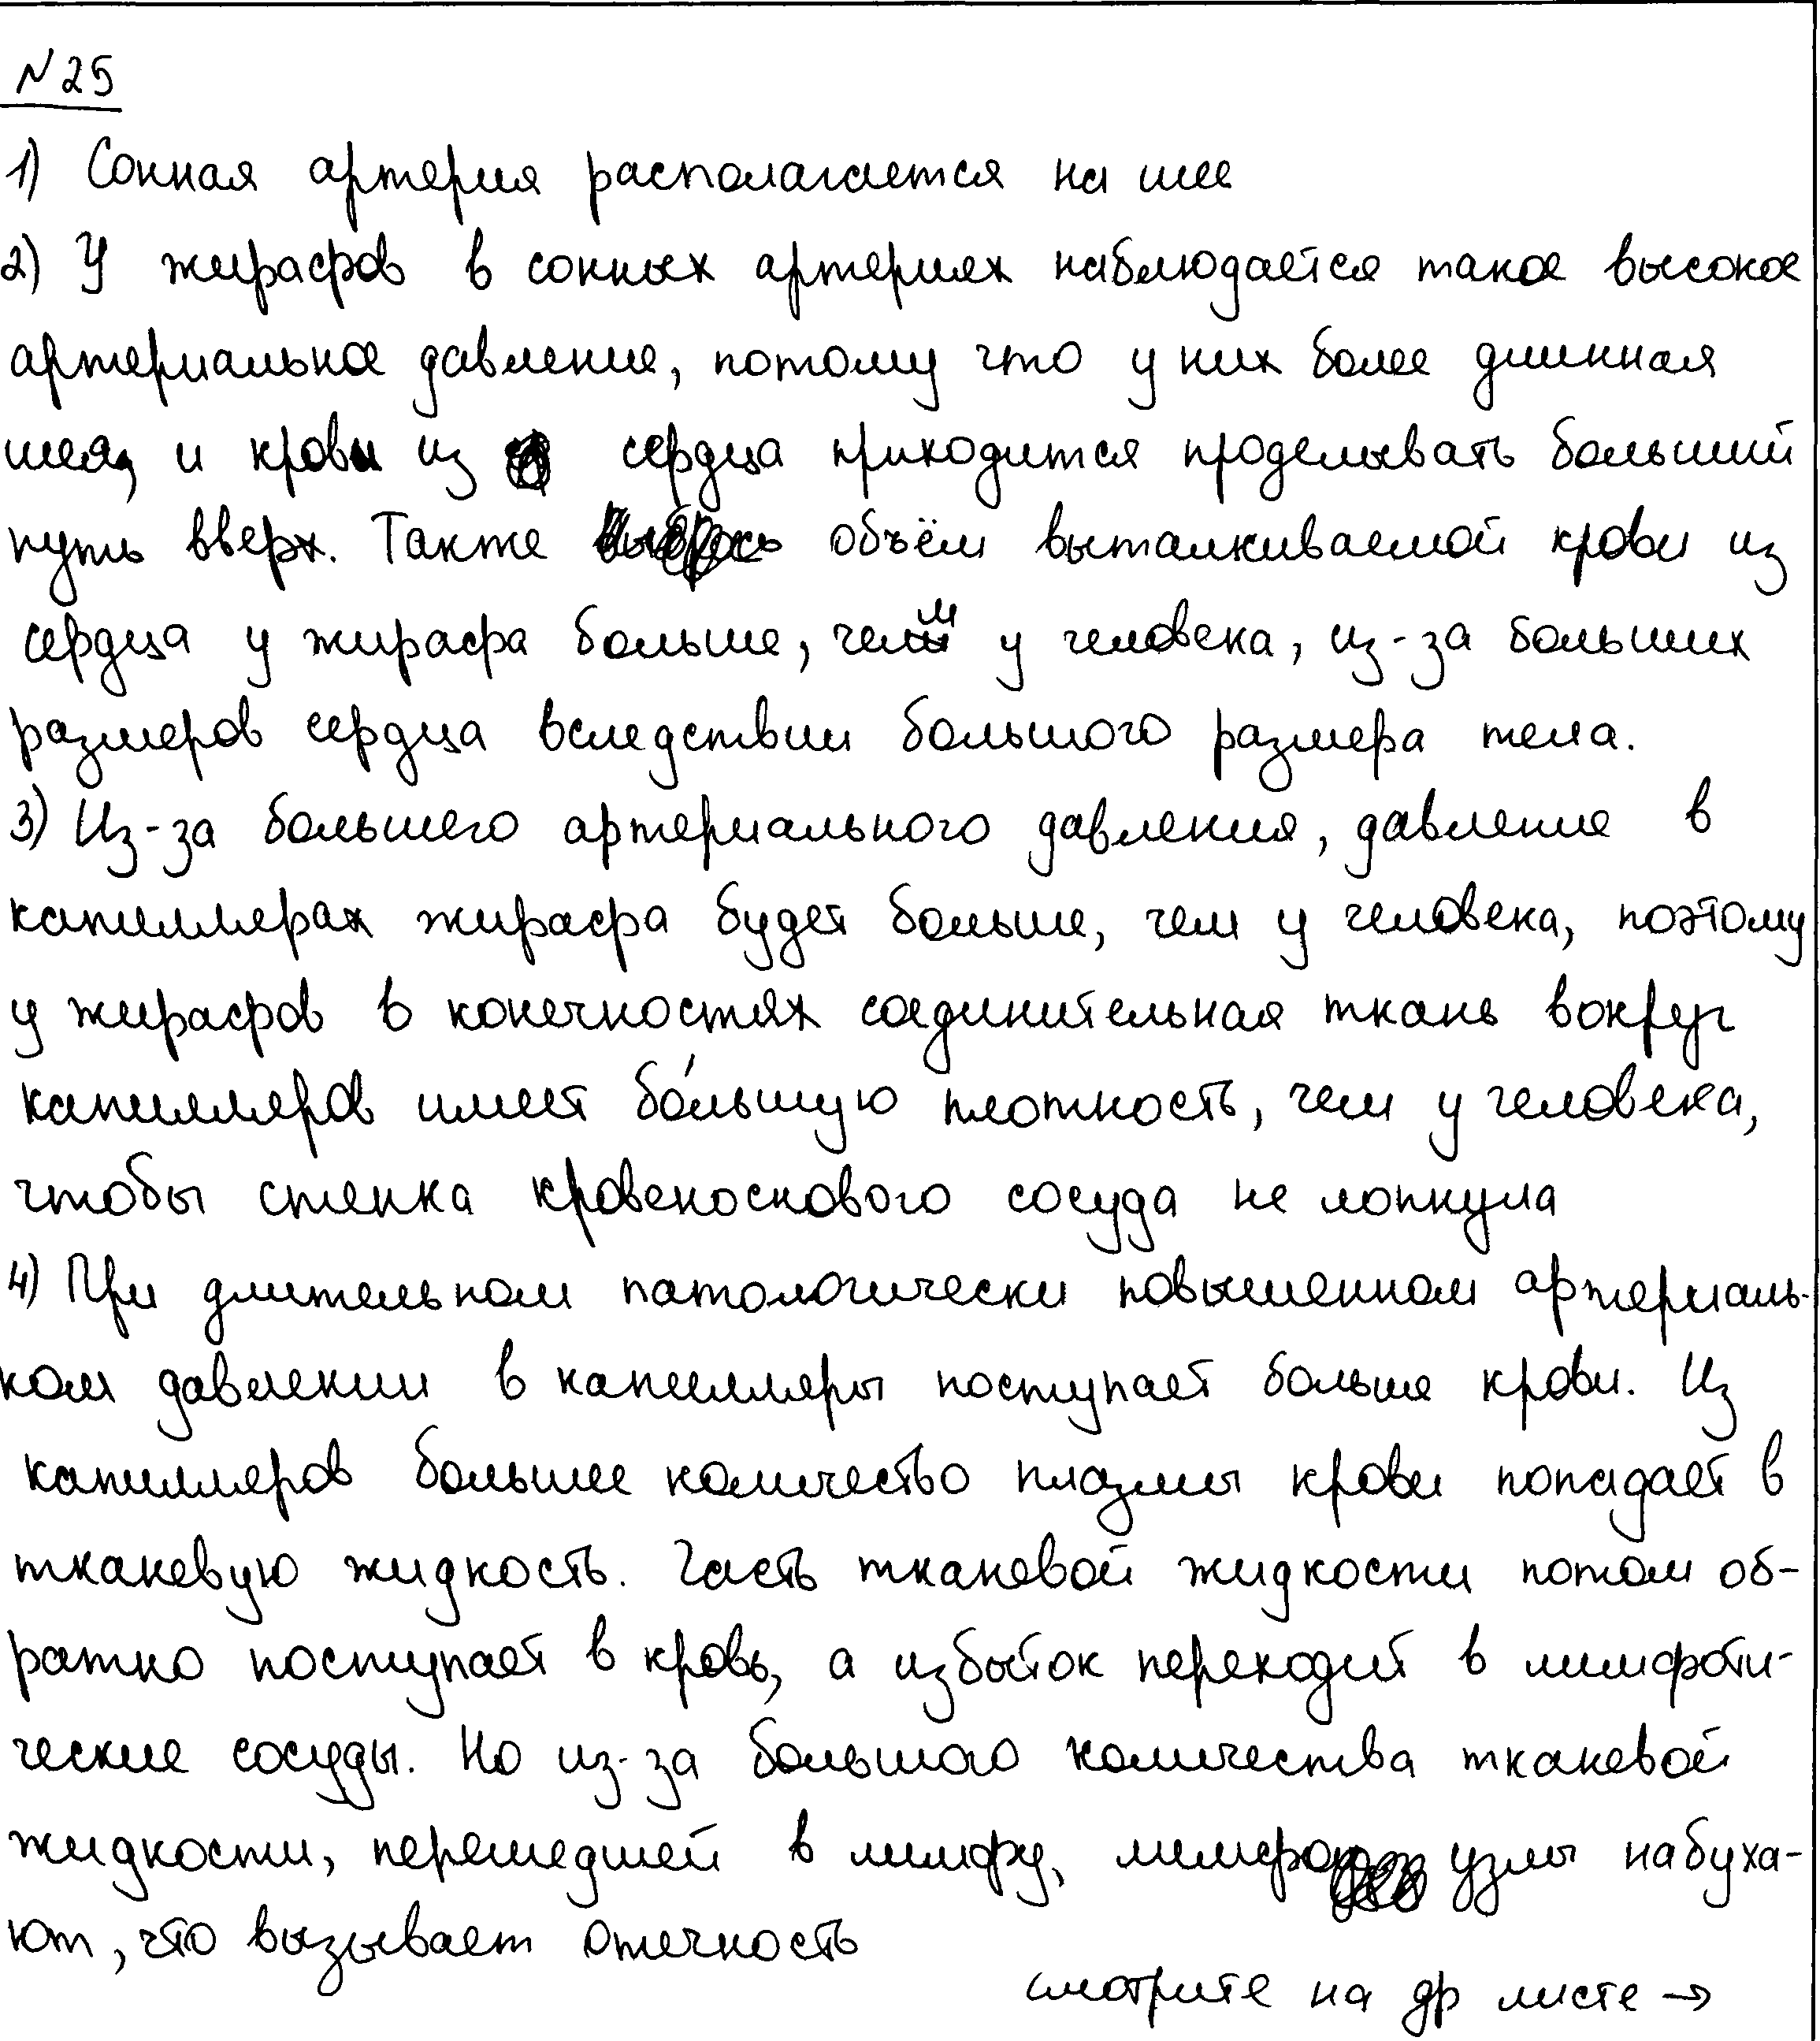 №25
1) Сонная артерия располагается на шее
2) У жирафов в сонных артериях наблюдается такое высокое
артериальное давление, потому что у них более длинная
шея, и крови из сердца приходится проделывать больший
путь вверх. Также объём выталкиваемой крови из
сердца у жирафа больше, чем у человека, из-за больших
размеров сердца вследствии большого размера тела.
3) Из-за большего артериального давления, давление в
капиллярах жирафа будет больше, чем у человека, поэтому
у жирафов в конечностях соединительная ткань вокруг
капилляров имеет бо́льшую плотность, чем у человека,
чтобы стенка кровеноскового сосуда не лопнула
4) При длительном патологически повышенном артериаль-
ном давлении в капилляры поступает больше крови. Из
капилляров большее количество плазмы крови попадает в
тканевую жидкость. Часть тканевой жидкости потом об-
ратно поступает в кровь, а избыток переходит в лимфоти-
ческие сосуды. Но из-за большого количества тканевой
жидкости, перешедшей в лимфу, лимфо узлы набуха-
ют, что вызывает отечность
смотрите на др листе →